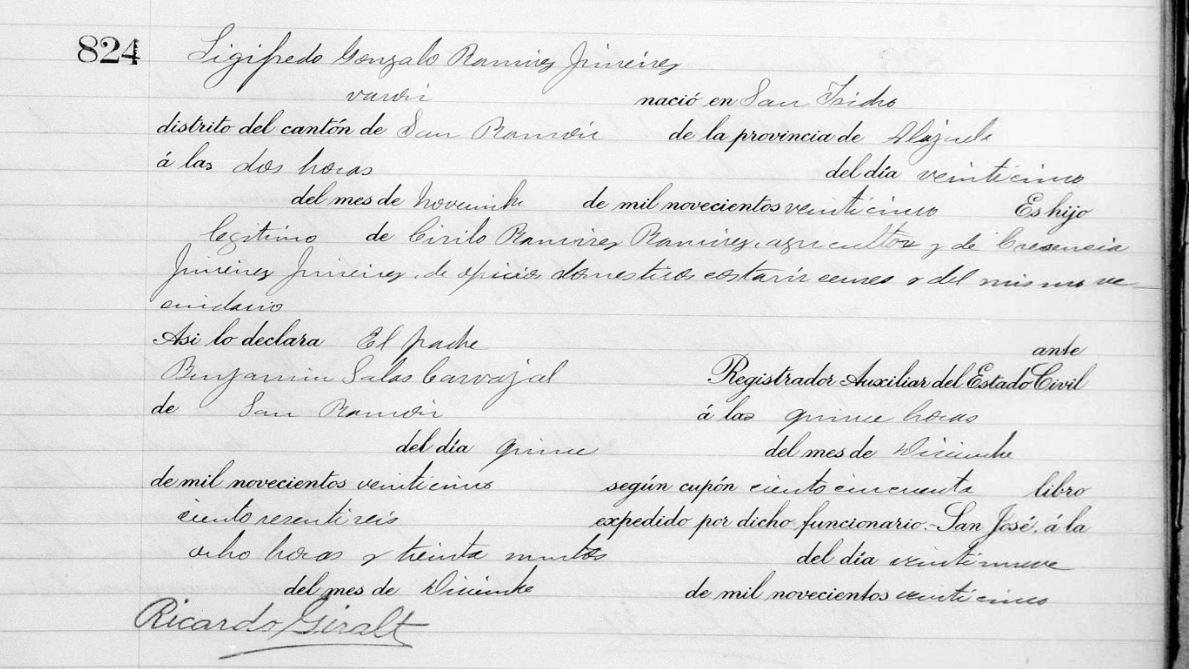 824 Sigifredo Gonzalo Ramirez Jiménez
varón nació en San Isidro
distrito del cantón de San Ramón de la provincia de Alajuela
á las dos horas del día veinticinco
del mes de Noviembre de mil novecientos veinticinco Es hijo
legitimo de Cirilo Ramirez Ramirez, agricultor y de Cresencia
Jiménez Jiménez, de oficios domesticos costarricenses y del mismo ve-
cindario
Asi lo declara El padre ante
Benjamin Salas Carvajal Registrador Auxiliar del Estado Civil
de San Ramón á las quince horas
del día quince del mes de Diciembre
de mil novecientos veinticinco según cupón ciento cincuenta libro
ciento sesentiseis expedido por dicho funcionario.- San José, á la
ocho horas y treinta minutos del día veintinueve
del mes de Diciembre de mil novecientos veinticinco
Ricardo Giralt